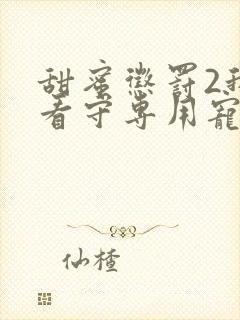 甜蜜惩罚2我
看守专用宠
仙楂